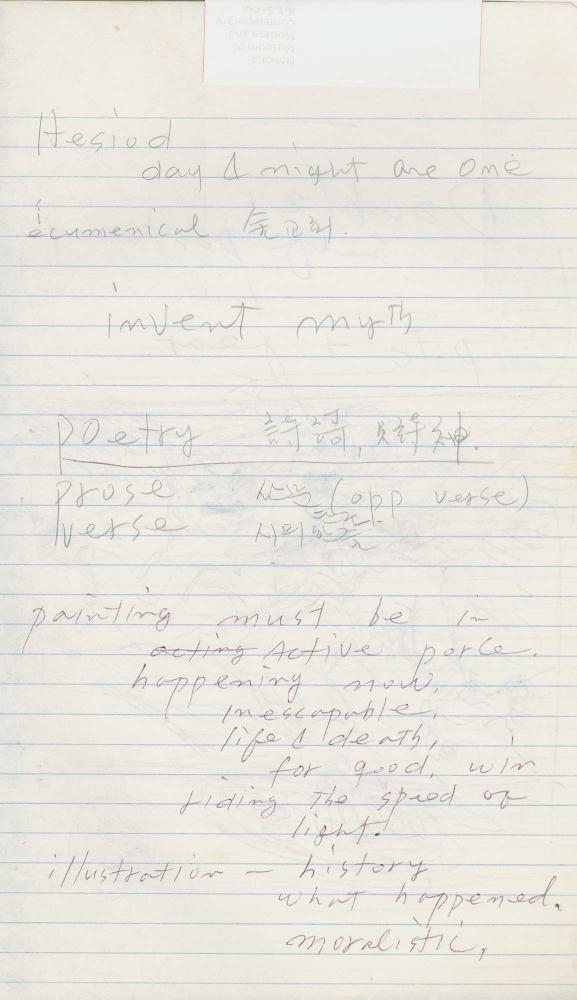 National
Museum of
Modern and
Contemporary
Art, Seoul
Hesiod
day & night are one
ecumenical 全교회.
invent myth
poetry 詩
prose 산문 (opp verse)
verse 시의 한줄
painting must be in
acting Active porce.
happening now.
inescapable.
life & death,
for good, win
riding the speed of
light.
illustration — history
what happened.
moralistic,